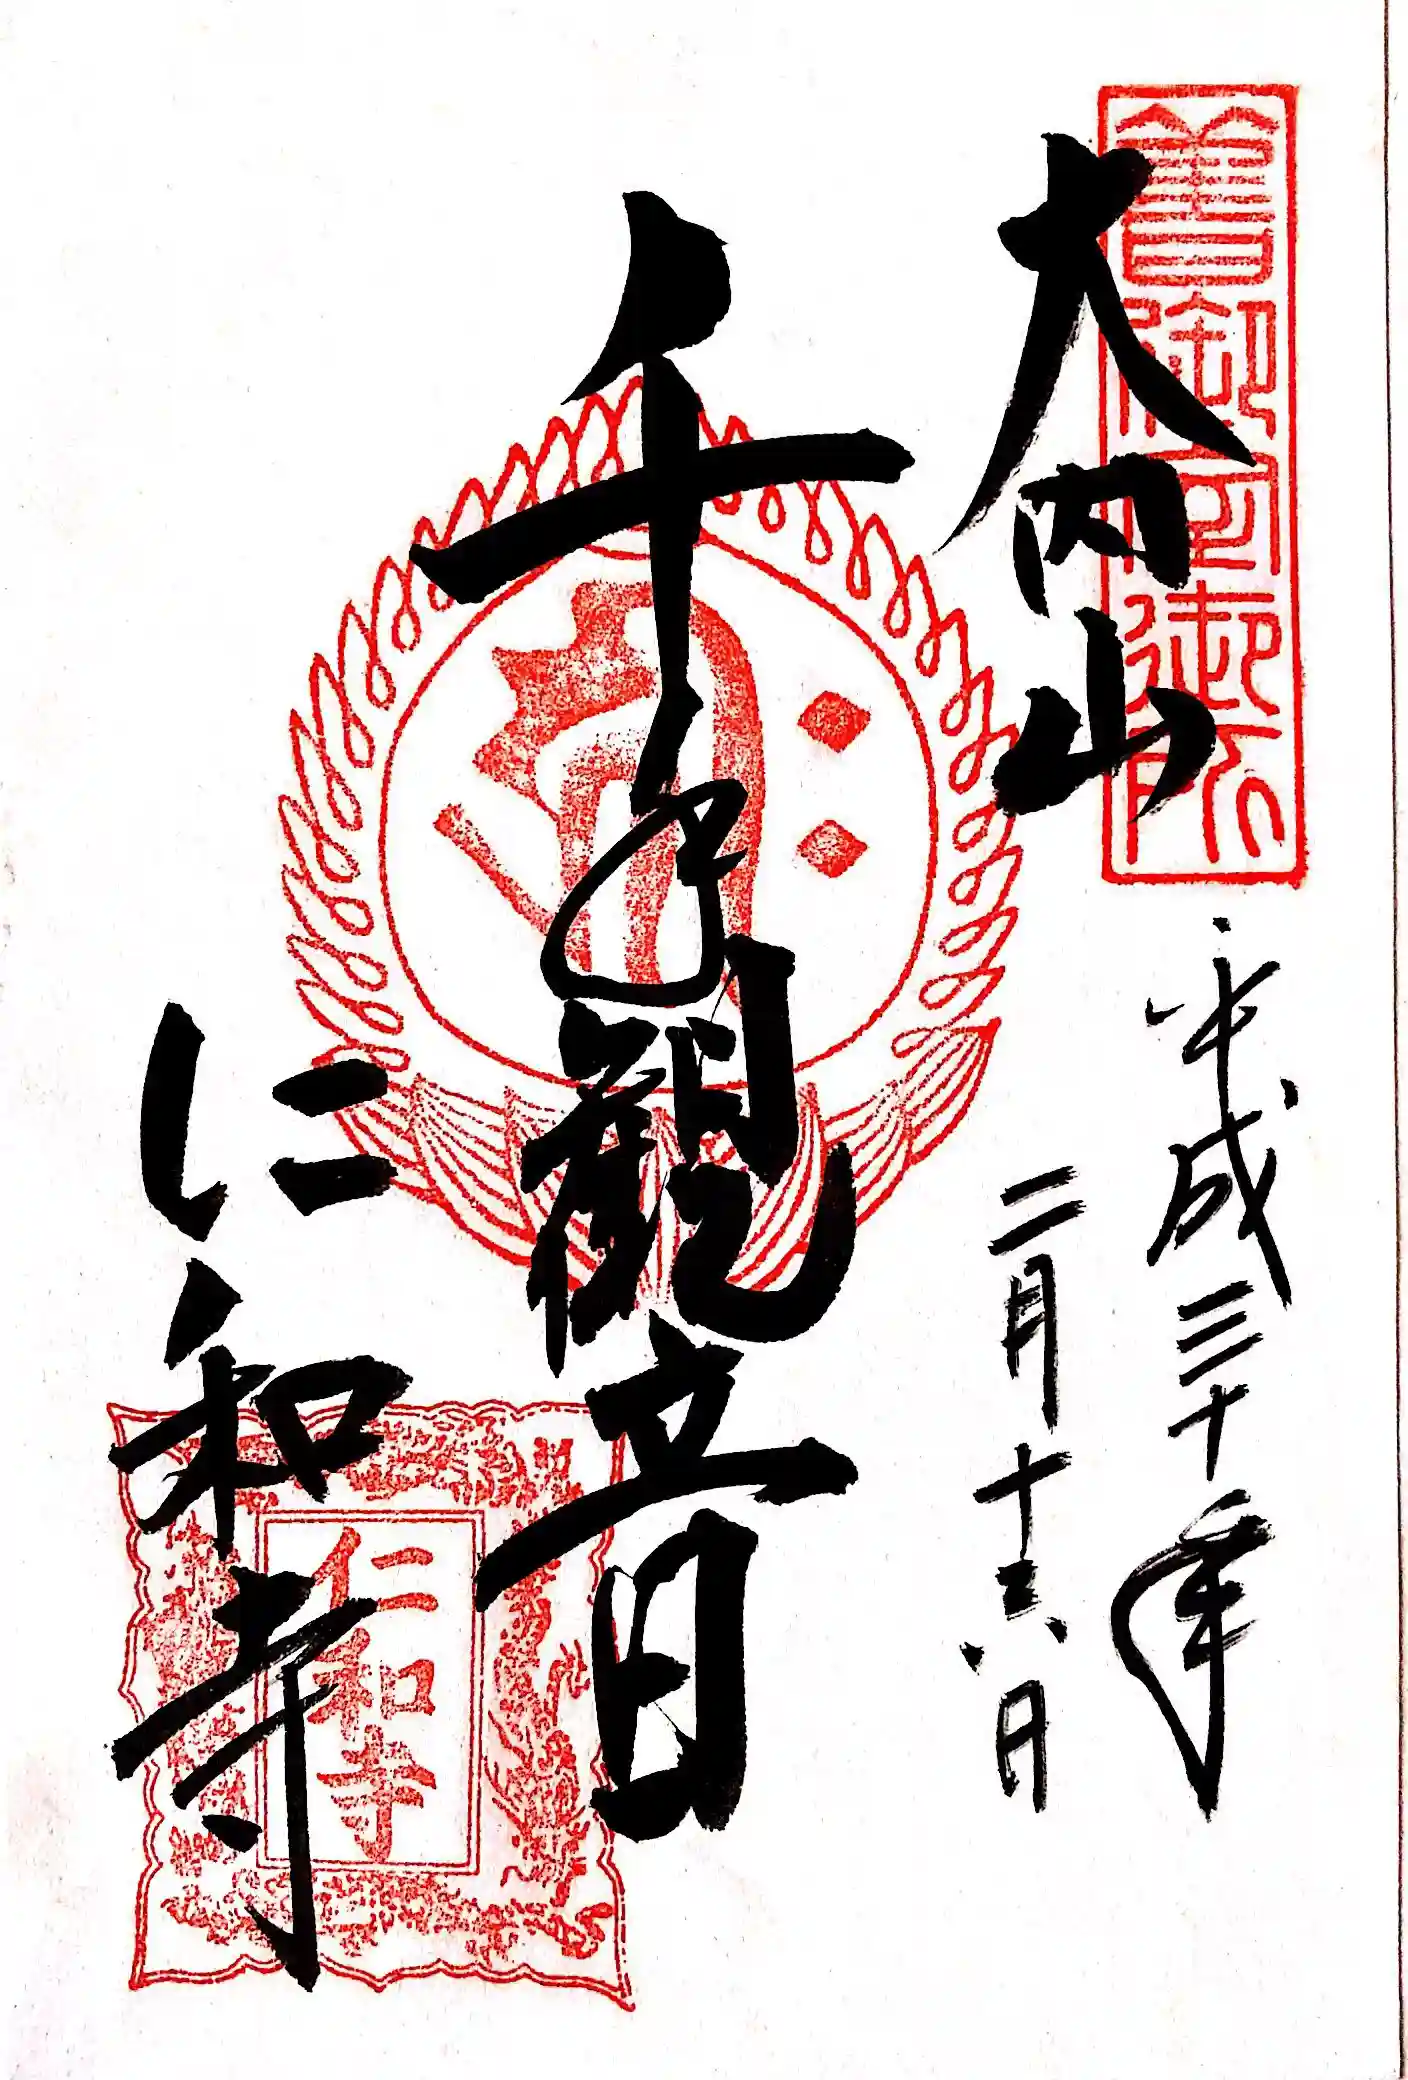 舊御室御所
大内山
平成三十年
二月十六日
千手観音
仁和寺
仁和寺